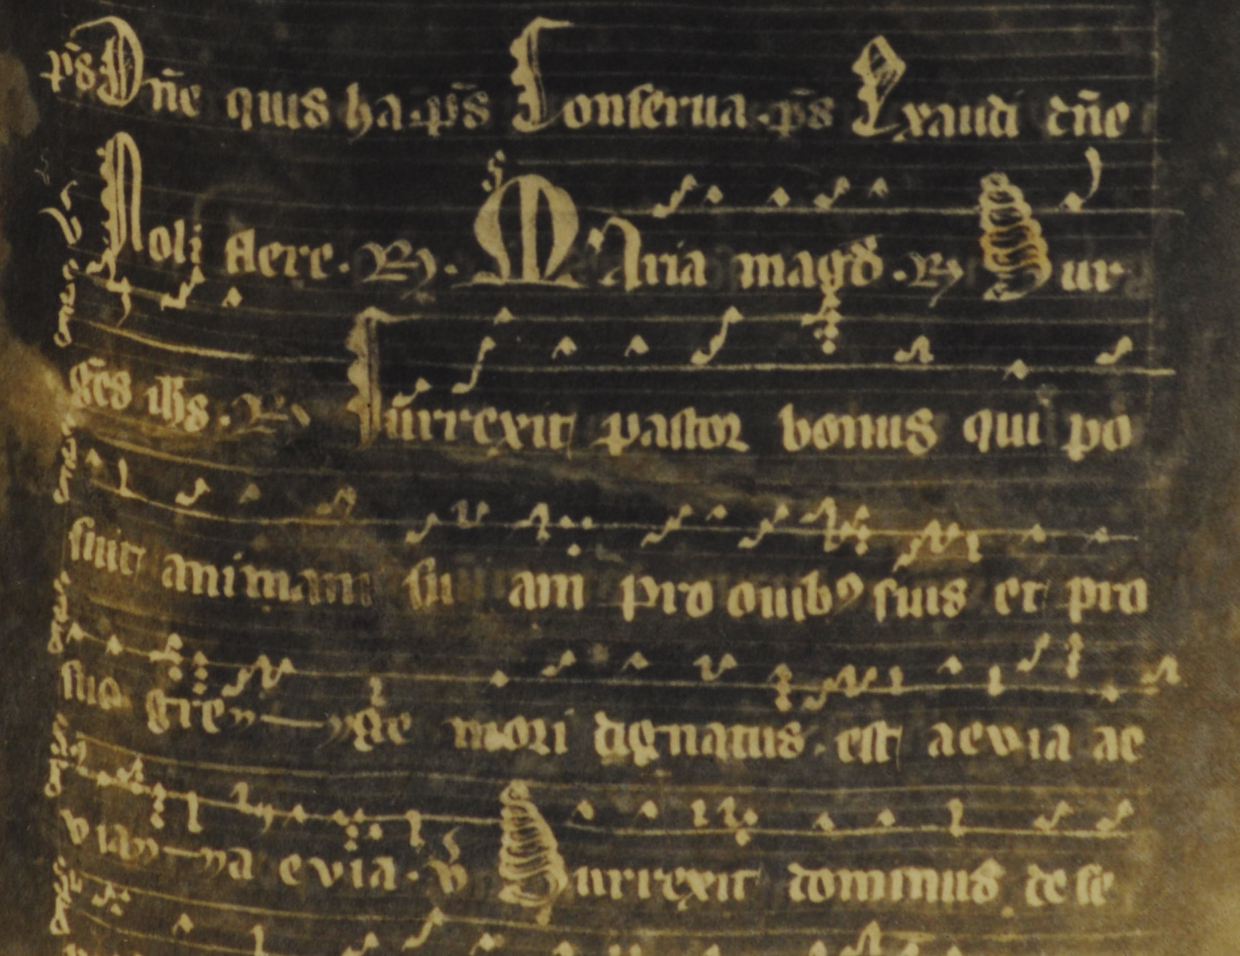 ps̄ Dn̄e quis ha. ps̄ Conserua. ps̄ Exaudi dn̄e
Noli flere. R. MAria magd̄. R. Sur
gēs ih̄s. R. Surrexit pastor bonus qui po
suit animam suam pro ouibꝰ suis et pro
suo gre ge mori dignatus est aevia ae
via a evia. v̄ Surrexit dominus de se